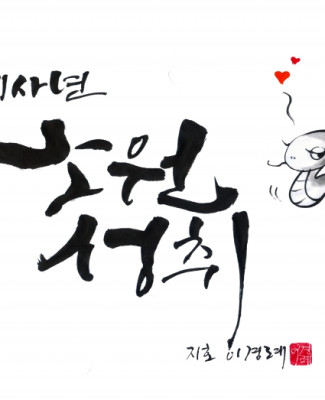 계사년
소원
성취
지호 이경례